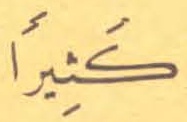 كَثِيرًا